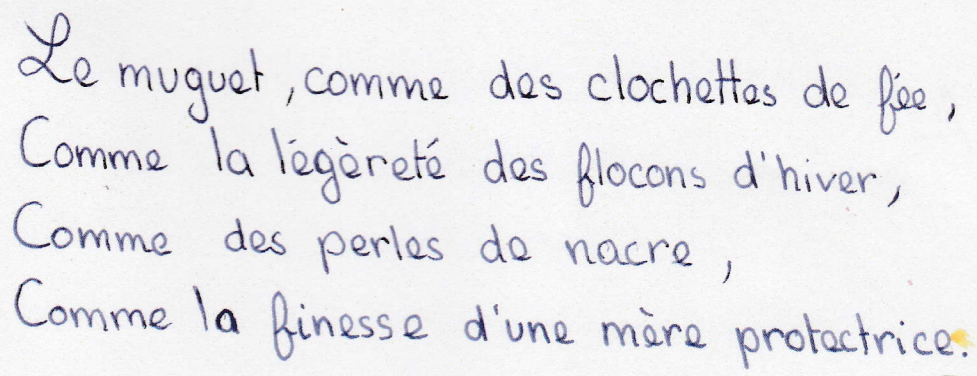 Le muguet, comme des clochettes de fée,
Comme la légèreté des flocons d'hiver,
Comme des perles de nacre,
Comme la finesse d'une mère protectrice.